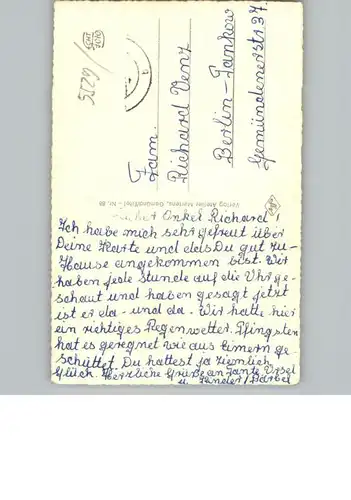 Fam.
Richard Venz
Berlin-Pankow
Gemündenerstr 37.
Verlag Atelier Mertens,
Onkel Richard!
Ich habe mich sehr gefreut über
Deine Karte und das Du gut zu-
Hause angekommen bist. Wir
haben jede Stunde auf die Uhr ge-
schaut und haben gesagt jetzt
ist er da - und da. Wir hatte hier
ein richtiges Regenwetter. Pfingsten
hat es geregnet wie aus Eimern ge
schüttet. Du hattest ja ziemlich
Glück. Herzliche Grüße an Tante Ursel
u.